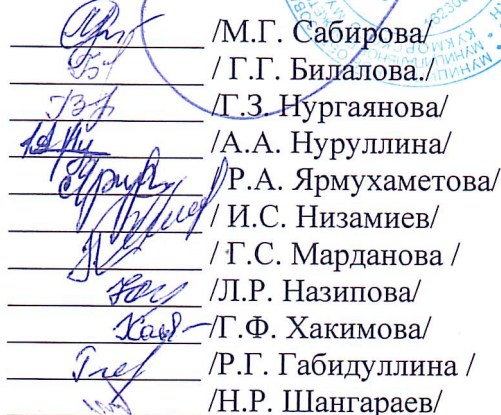 /М.Г. Сабирова/
/ Г.Г. Билалова./
/Г.З. Нургаянова/
/А.А. Нуруллина/
/Р.А. Ярмухаметова/
/ И.С. Низамиев/
/ Г.С. Марданова /
/Л.Р. Назипова/
/Г.Ф. Хакимова/
/Р.Г. Габидуллина /
/Н.Р. Шангараев/